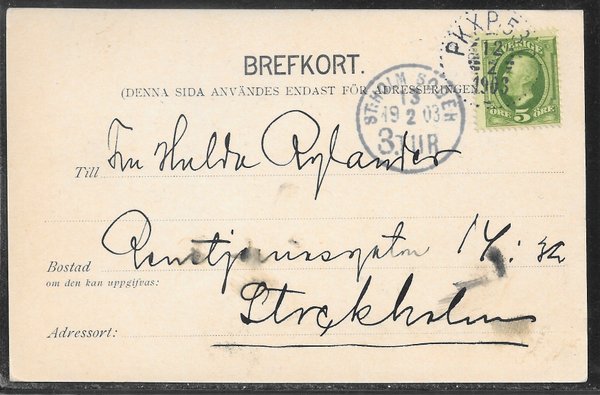 BREFKORT.
(DENNA SIDA ANVÄNDES ENDAST FÖR ADRESSERINGEN.)
PKXP 53
12
1903
SVERIGE
ÖRE 5 ÖRE
ST.HOLM SÖDER
13
19 2 03
3.TUR
Till Fru Hulda Rylander
Bostad Renstjernasgatan 14:
om den kan uppgifvas:
Stockholm
Adressort: